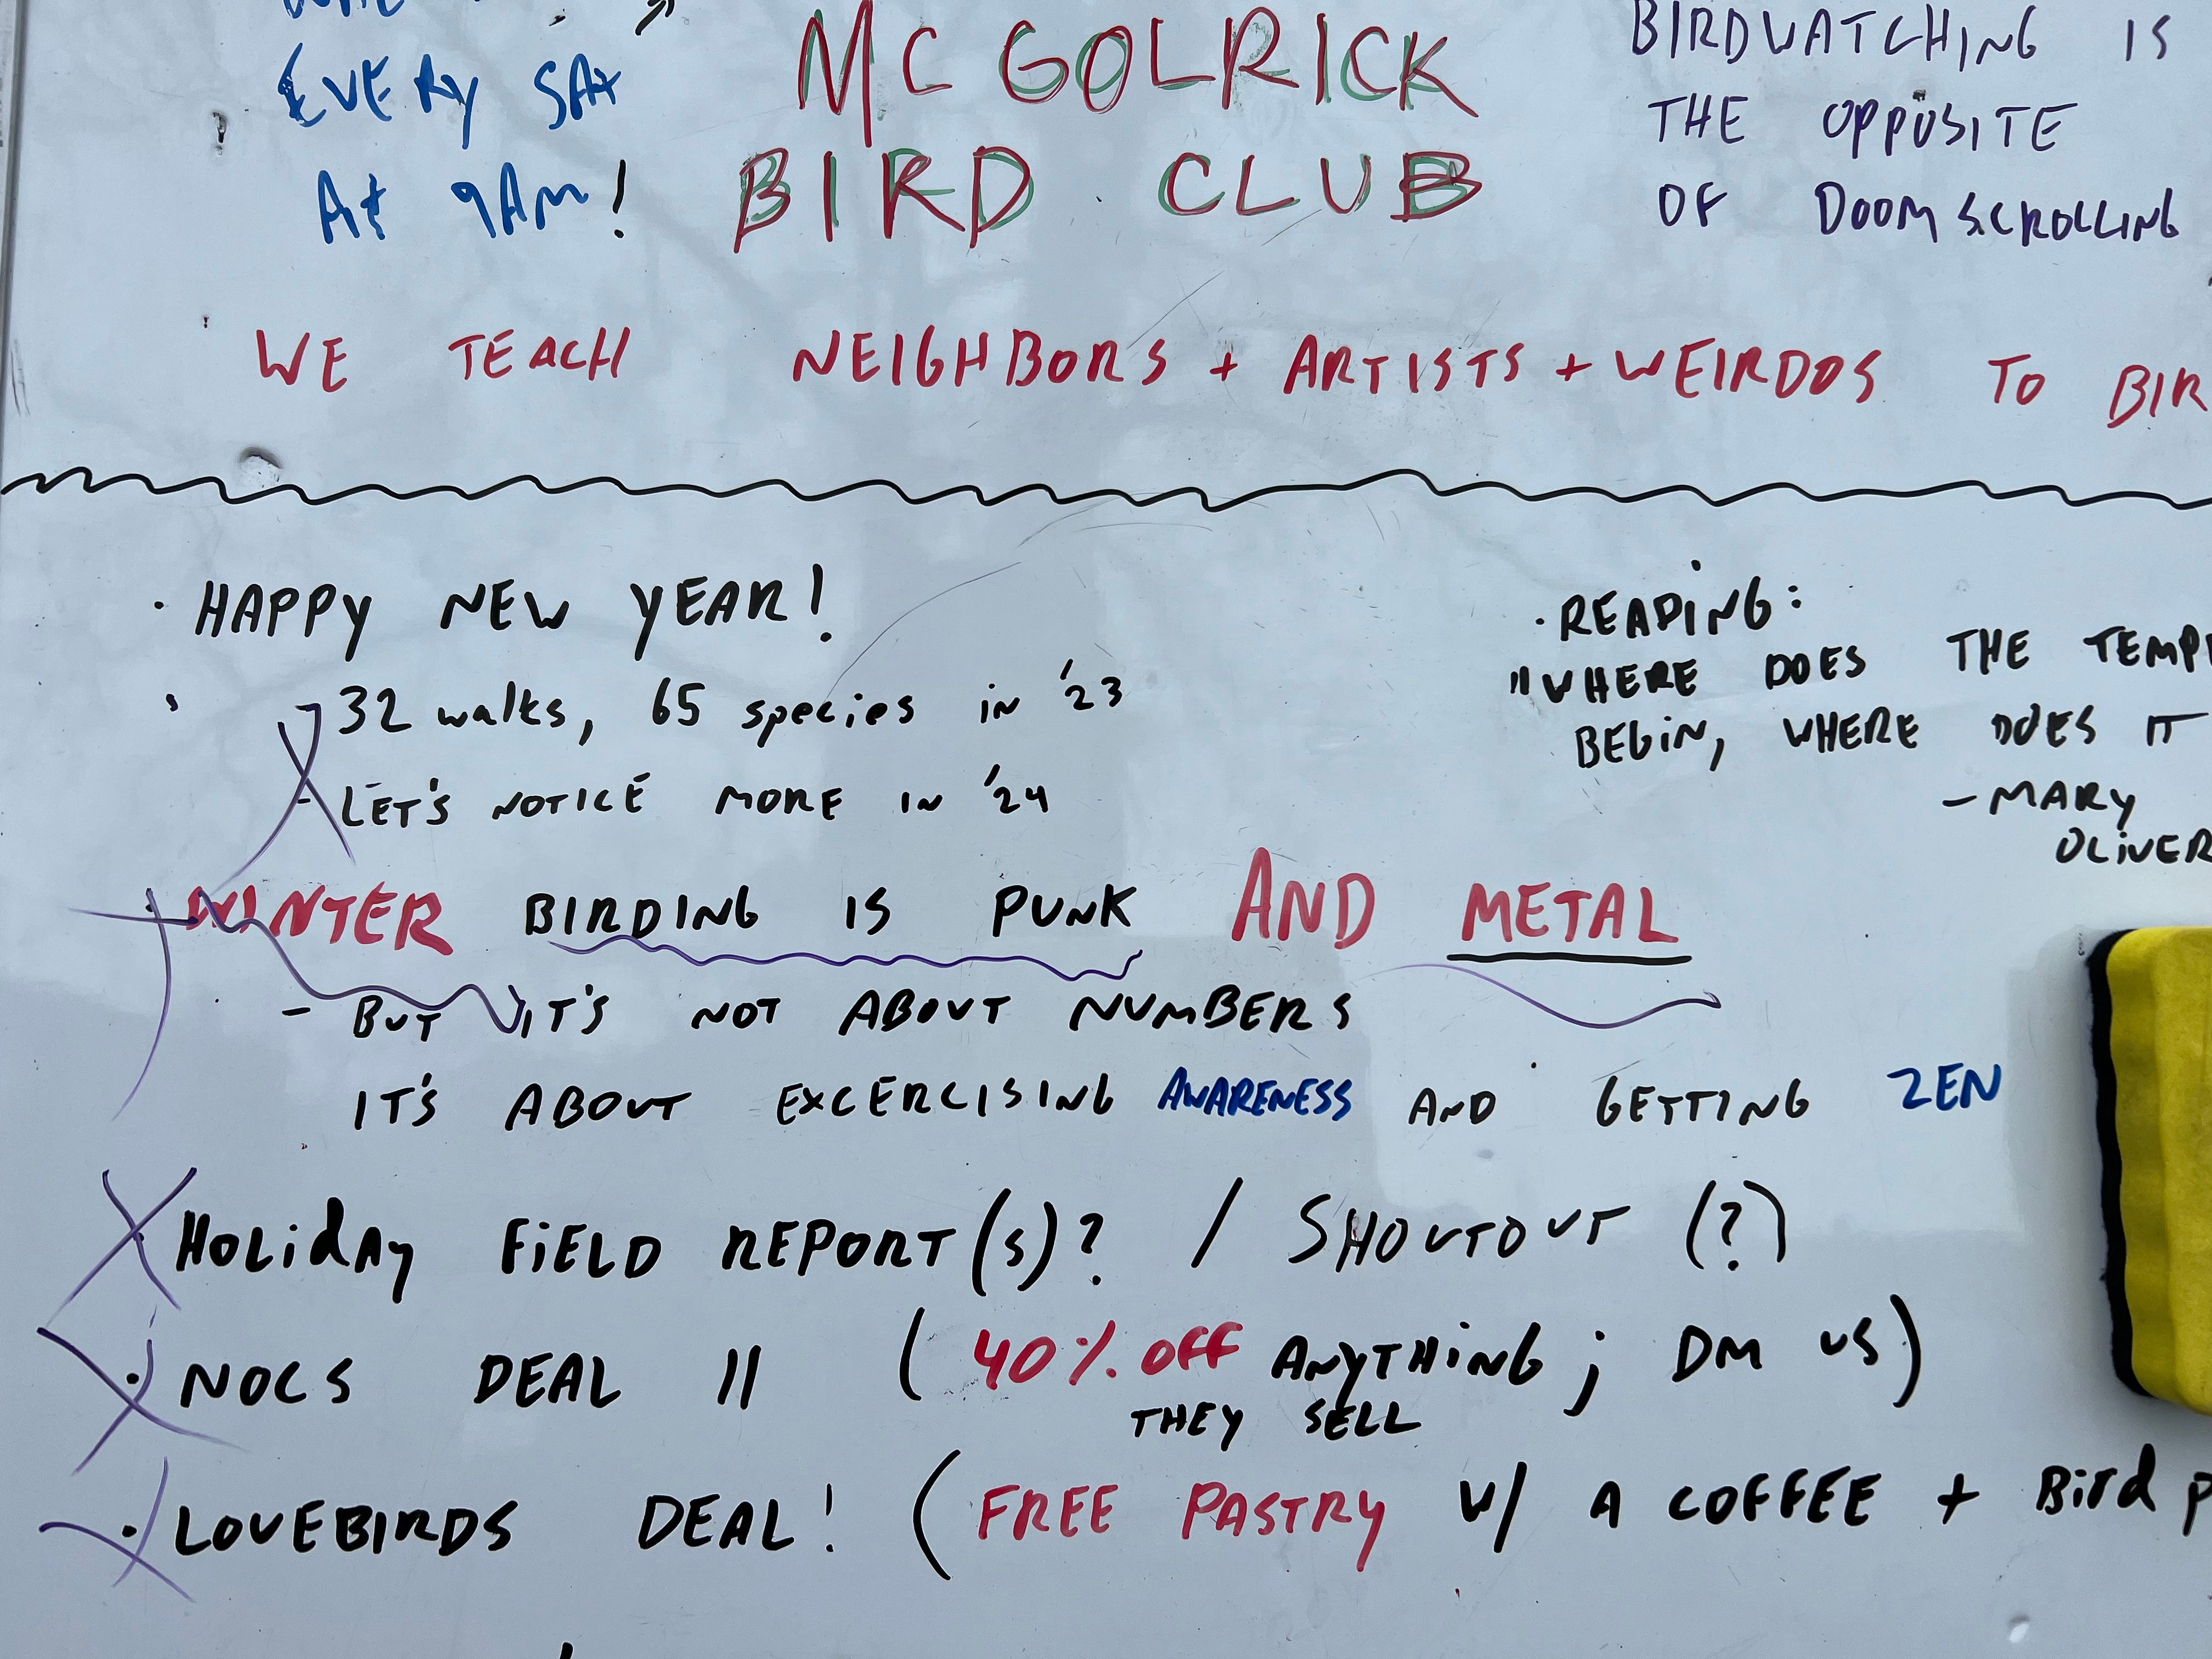 EVERY SAT
At 9AM!
MCGOLRICK
BIRD CLUB
BIRDWATCHING IS
THE OPPOSITE
OF DOOMSCROLLING
WE TEACH NEIGHBORS + ARTISTS + WEIRDOS TO BIR
· HAPPY NEW YEAR!
32 walks, 65 species in '23
- LET'S NOTICE MORE IN '24
· READING:
"WHERE DOES THE TEMP
BEGIN, WHERE DOES IT
- MARY
OLIVER
· WINTER BIRDING IS PUNK AND METAL
- BUT IT'S NOT ABOUT NUMBERS
IT'S ABOUT EXCERCISING AWARENESS AND GETTING ZEN
· HOLIDAY FIELD REPORT(S)? / SHOUTOUT (?)
· NOCS DEAL !! (40% OFF ANYTHING; DM US)
THEY SELL
· LOVEBIRDS DEAL! (FREE PASTRY W/ A COFFEE + Bird p